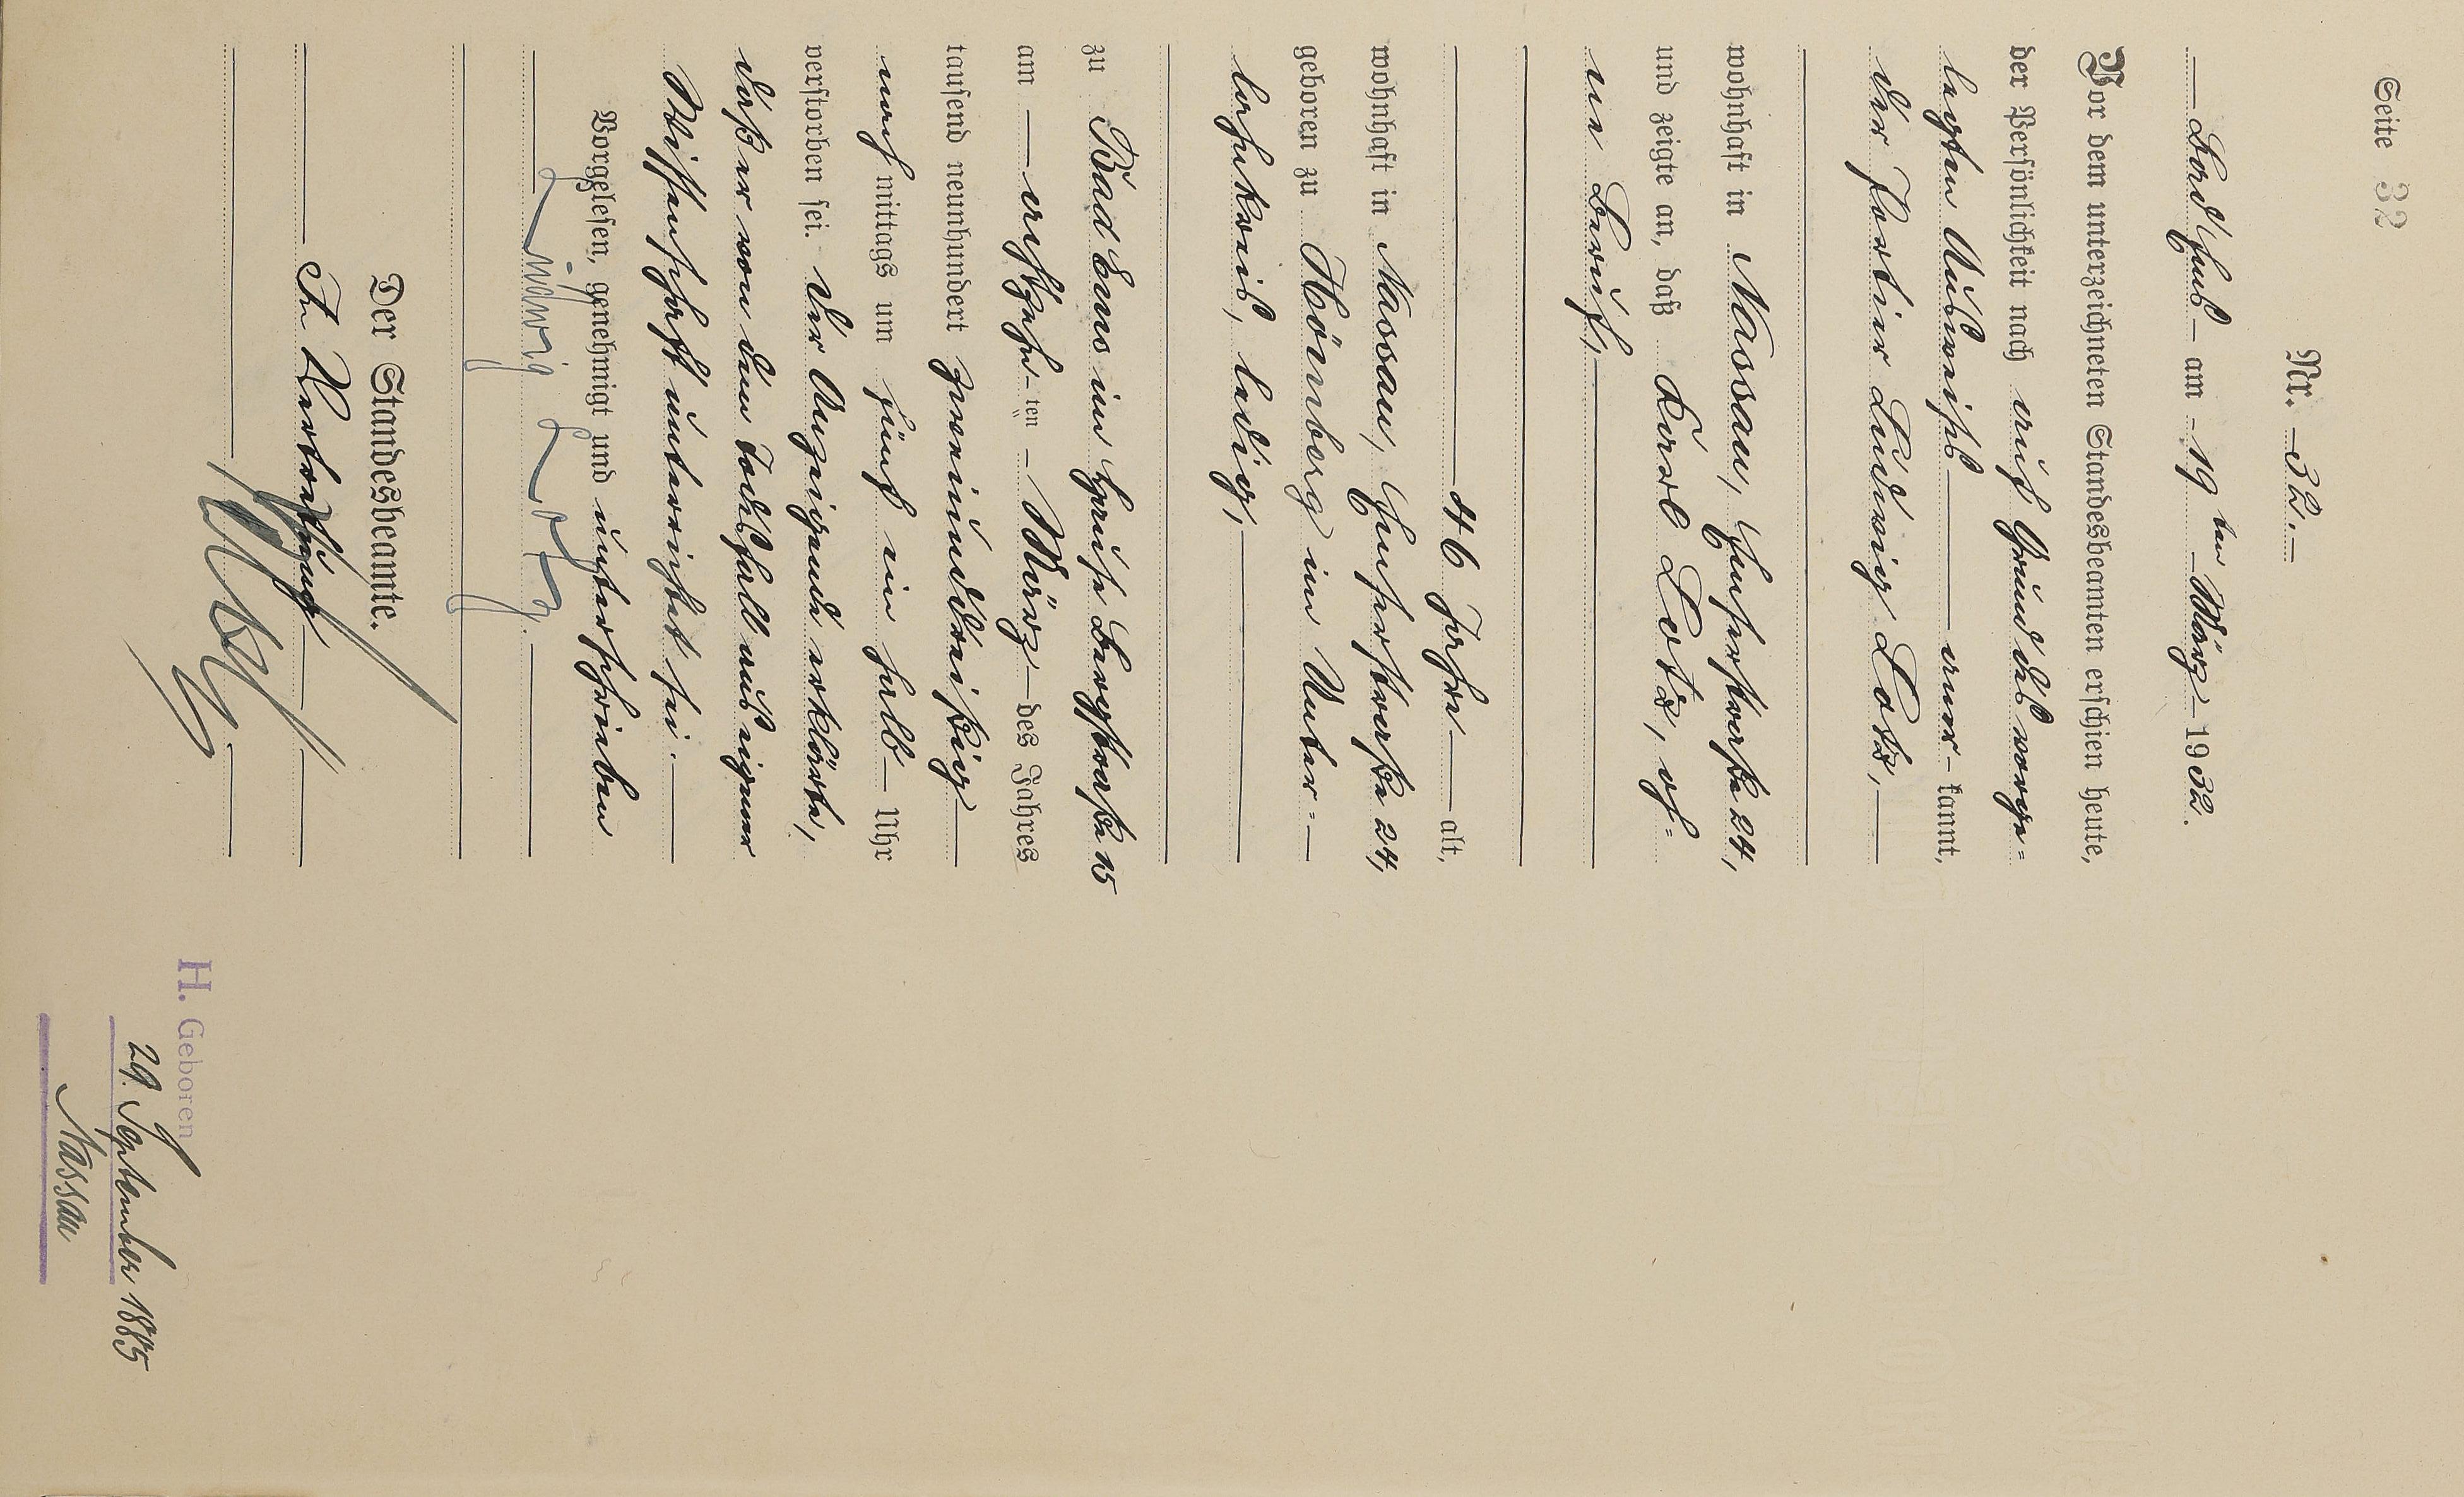 Seite 32
Nr. 32.
Bad Ems am 19ten März 1932.
Vor dem unterzeichneten Standesbeamten erschien heute,
der Persönlichkeit nach auf Grund des vorge=
legten Ausweises aner kannt,
der Portier Ludwig Lotz,
wohnhaft in Nassau, Späherstraße 24,
und zeigte an, daß Karl Lotz, oh=
ne Beruf,
46 Jahre alt,
wohnhaft in Nassau, 24,
geboren zu Hömberg im Unter=
lahnkreis, ledig,
zu Bad Ems im Hause 15
am achtzehn ten März des Jahres
tausend neunhundert zweiunddreißig
nach mittags um fünf ein halb Uhr
verstorben sei. Der Anzeigende erklärte,
daß er von dem Todesfall aus eigener
Wissenschaft unterrichtet sei.
Vorgelesen, genehmigt und unterschrieben
Ludwig Lotz.
Der Standesbeamte.
In Vertretung
H. Geboren
29. September 1885
Nassau